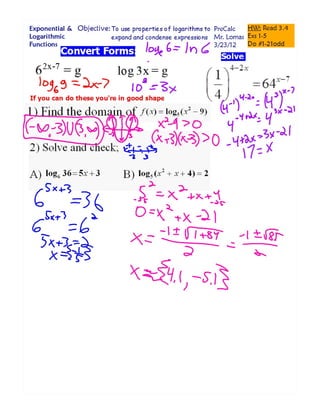 Exponential & Logarithmic Functions
Objective: To use properties of logarithms to expand and condense expressions
PreCalc
Mr. Lomas
3/23/12
HW: Read 3.4
Exs 1-5
Do #1-21odd
Convert Forms:
log₆6 = ln 6
Solve
6^(2x-7) = g
log 3x = g
(1/4)^(4-2x) = 64^(x-7)
log₆g = 2x-7
10^g = 3x
(4^-1)^(4-2x) = (4^3)^(x-7)
If you can do these you're in good shape
4^(-4+2x) = 4^(3x-21)
1.) Find the domain of f(x) = log₆(x² − 9)
-4+2x = 3x-21
(-∞,-3)∪(3,∞)
x²-9 > 0
17 = x
(x+3)(x-3) > 0
2) Solve and check;
A) log₆ 36 = 5x + 3
B) log₅(x² + x + 4) = 2
6^(5x+3) = 36
5² = x² + x + 4
-25 -25
6^(5x+3) = 6²
0 = x² + x - 21
5x+3 = 2
x = (-1 ± √(1+84))/2 = (-1 ± √85)/2
x = {4.1, -5.1}